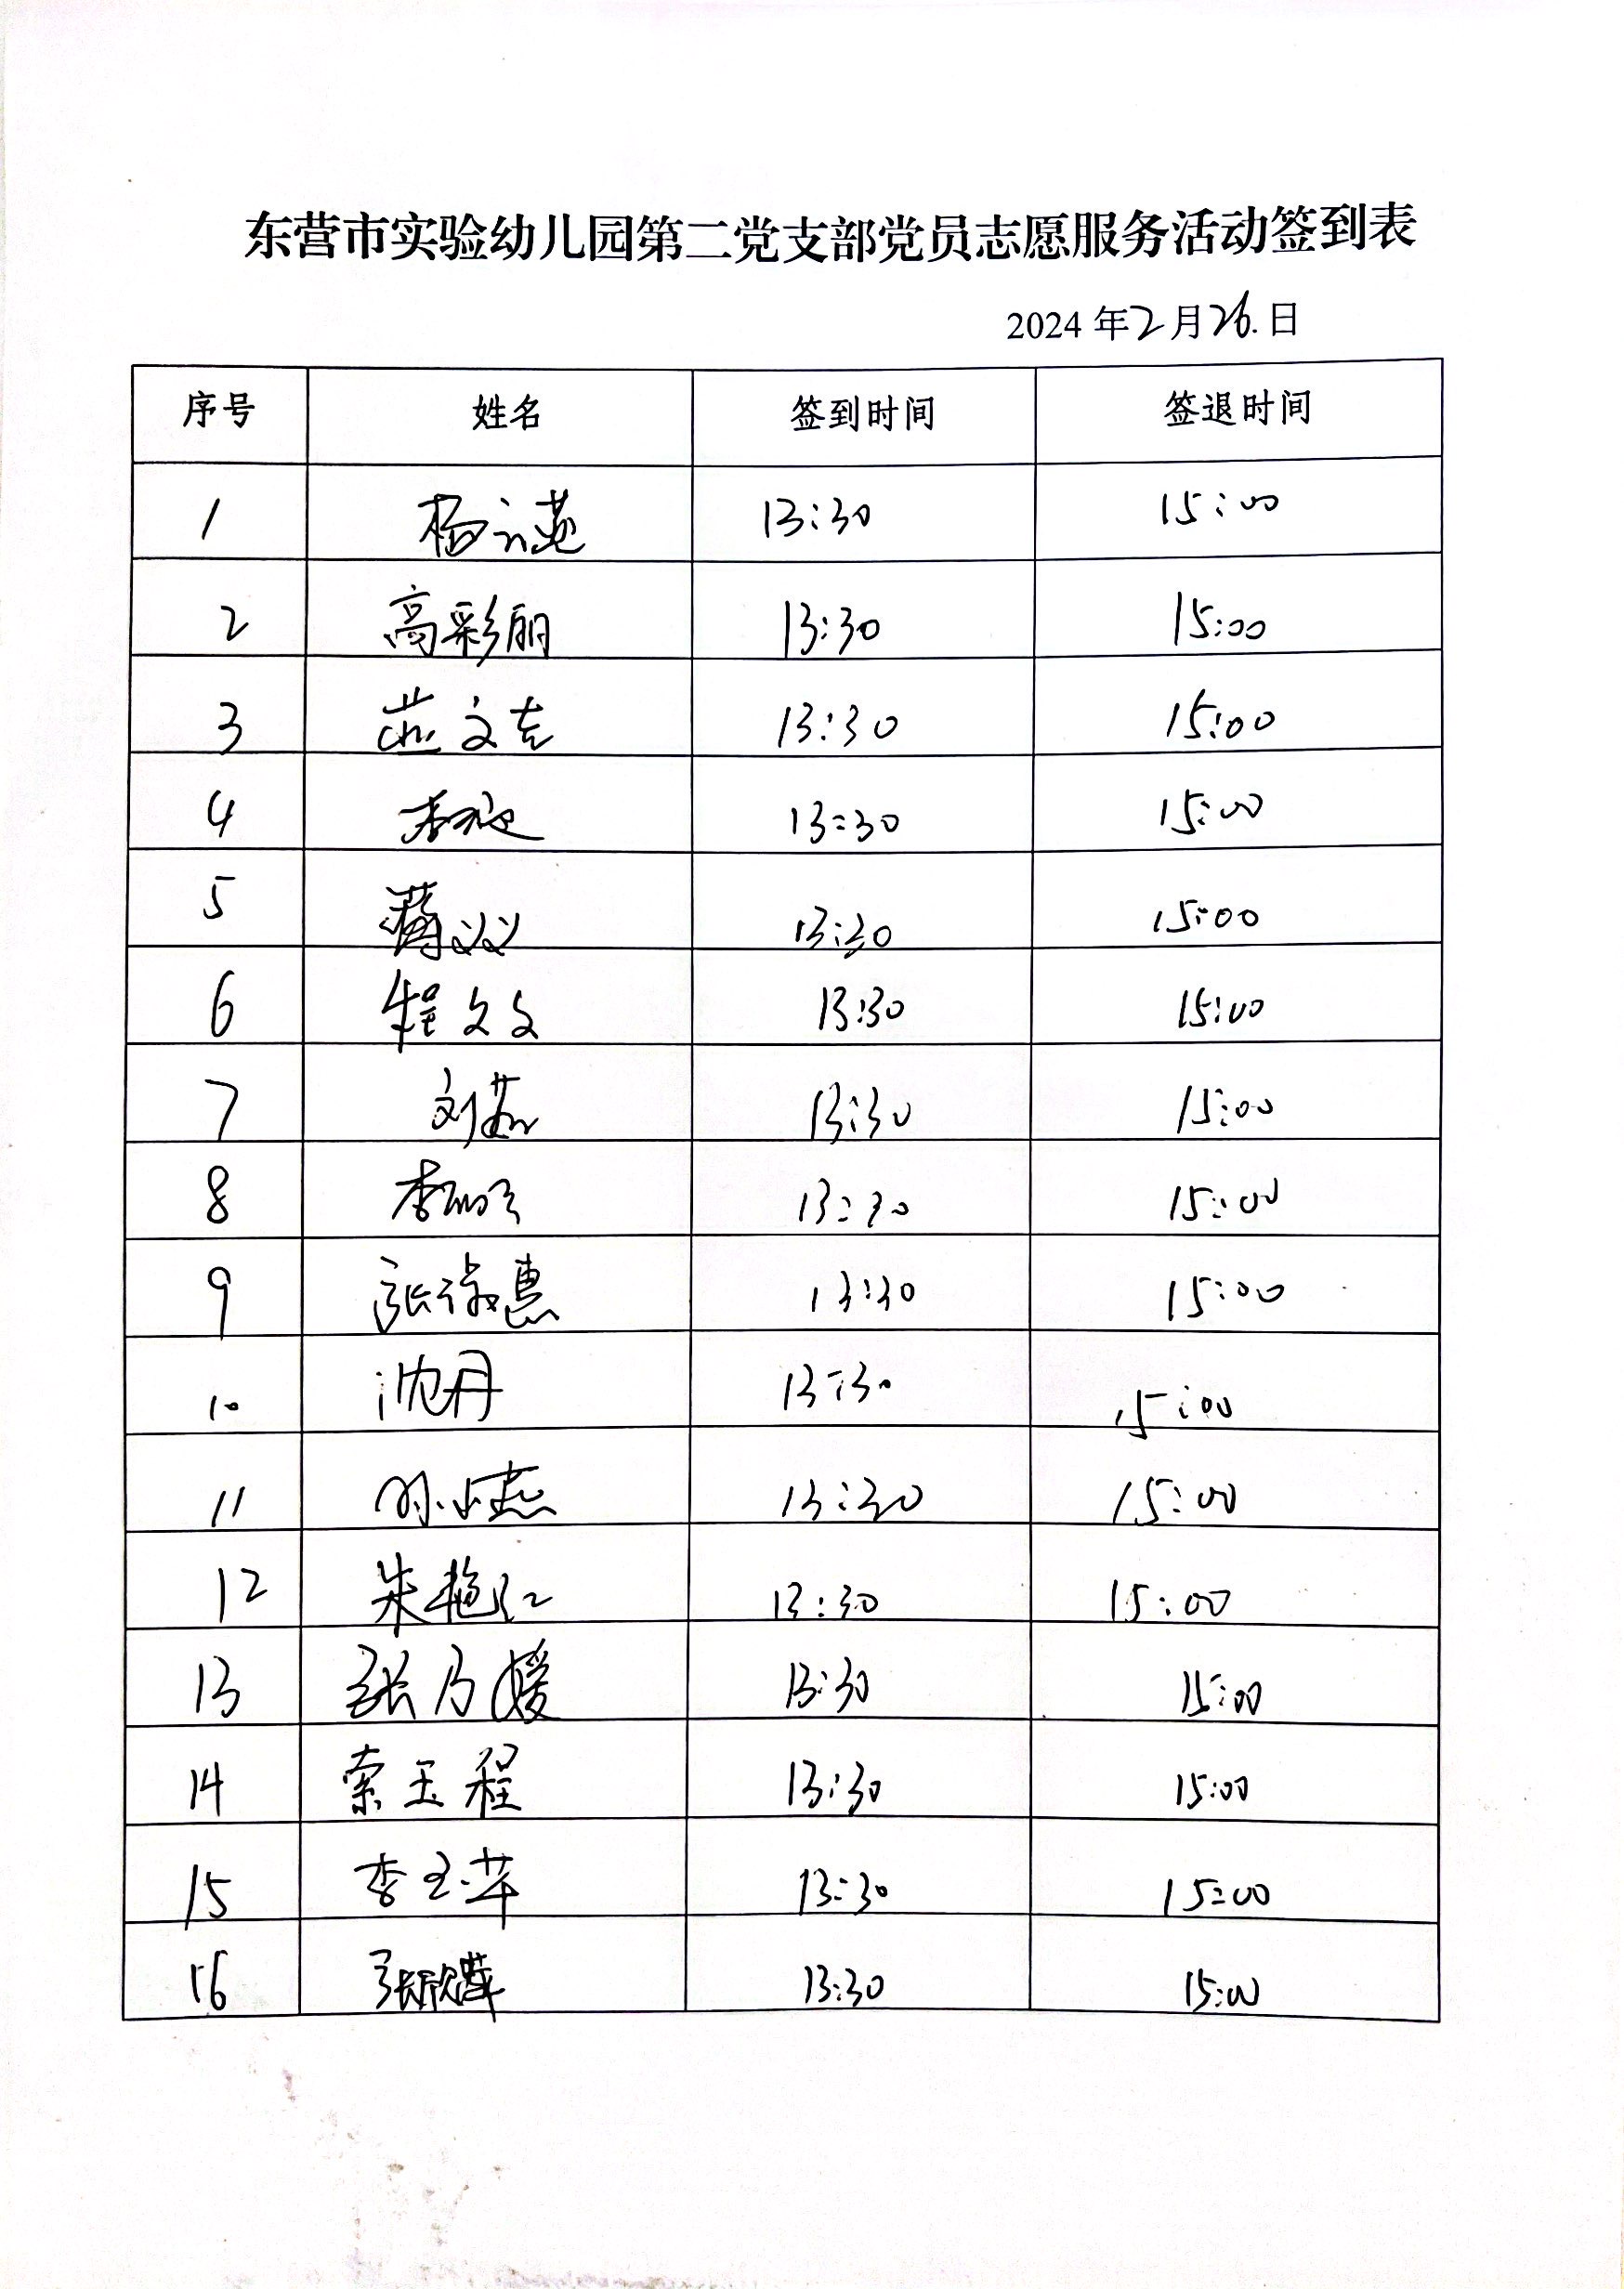 东营市实验幼儿园第二党支部党员志愿服务活动签到表
2024 年 2 月 26. 日
序号 姓名 签到时间 签退时间
1 杨 13:30 15:00
2 高彩丽 13:30 15:00
3 燕文 13:30 15:00
4 李 13:30 15:00
5 蔺双双 13:30 15:00
6 程文文 13:30 15:00
7 刘茹 13:30 15:00
8 李 13:30 15:00
9 张淑惠 13:30 15:00
10 沈丹 13:30 15:00
11 孙小燕 13:30 15:00
12 朱艳红 13:30 15:00
13 张乃媛 13:30 15:00
14 索玉程 13:30 15:00
15 李玉萍 13:30 15:00
16 张欣 13:30 15:00